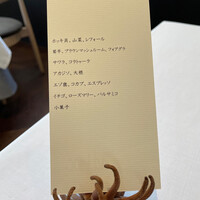 ホッキ貝、山菜、レフォール
筍芋、ブラウンマッシュルーム、フォアグラ
サワラ、コラトゥーラ
アカジソ、大根
エゾ鹿、コカブ、エスプレッソ
イチゴ、ローズマリー、バルサミコ
小菓子